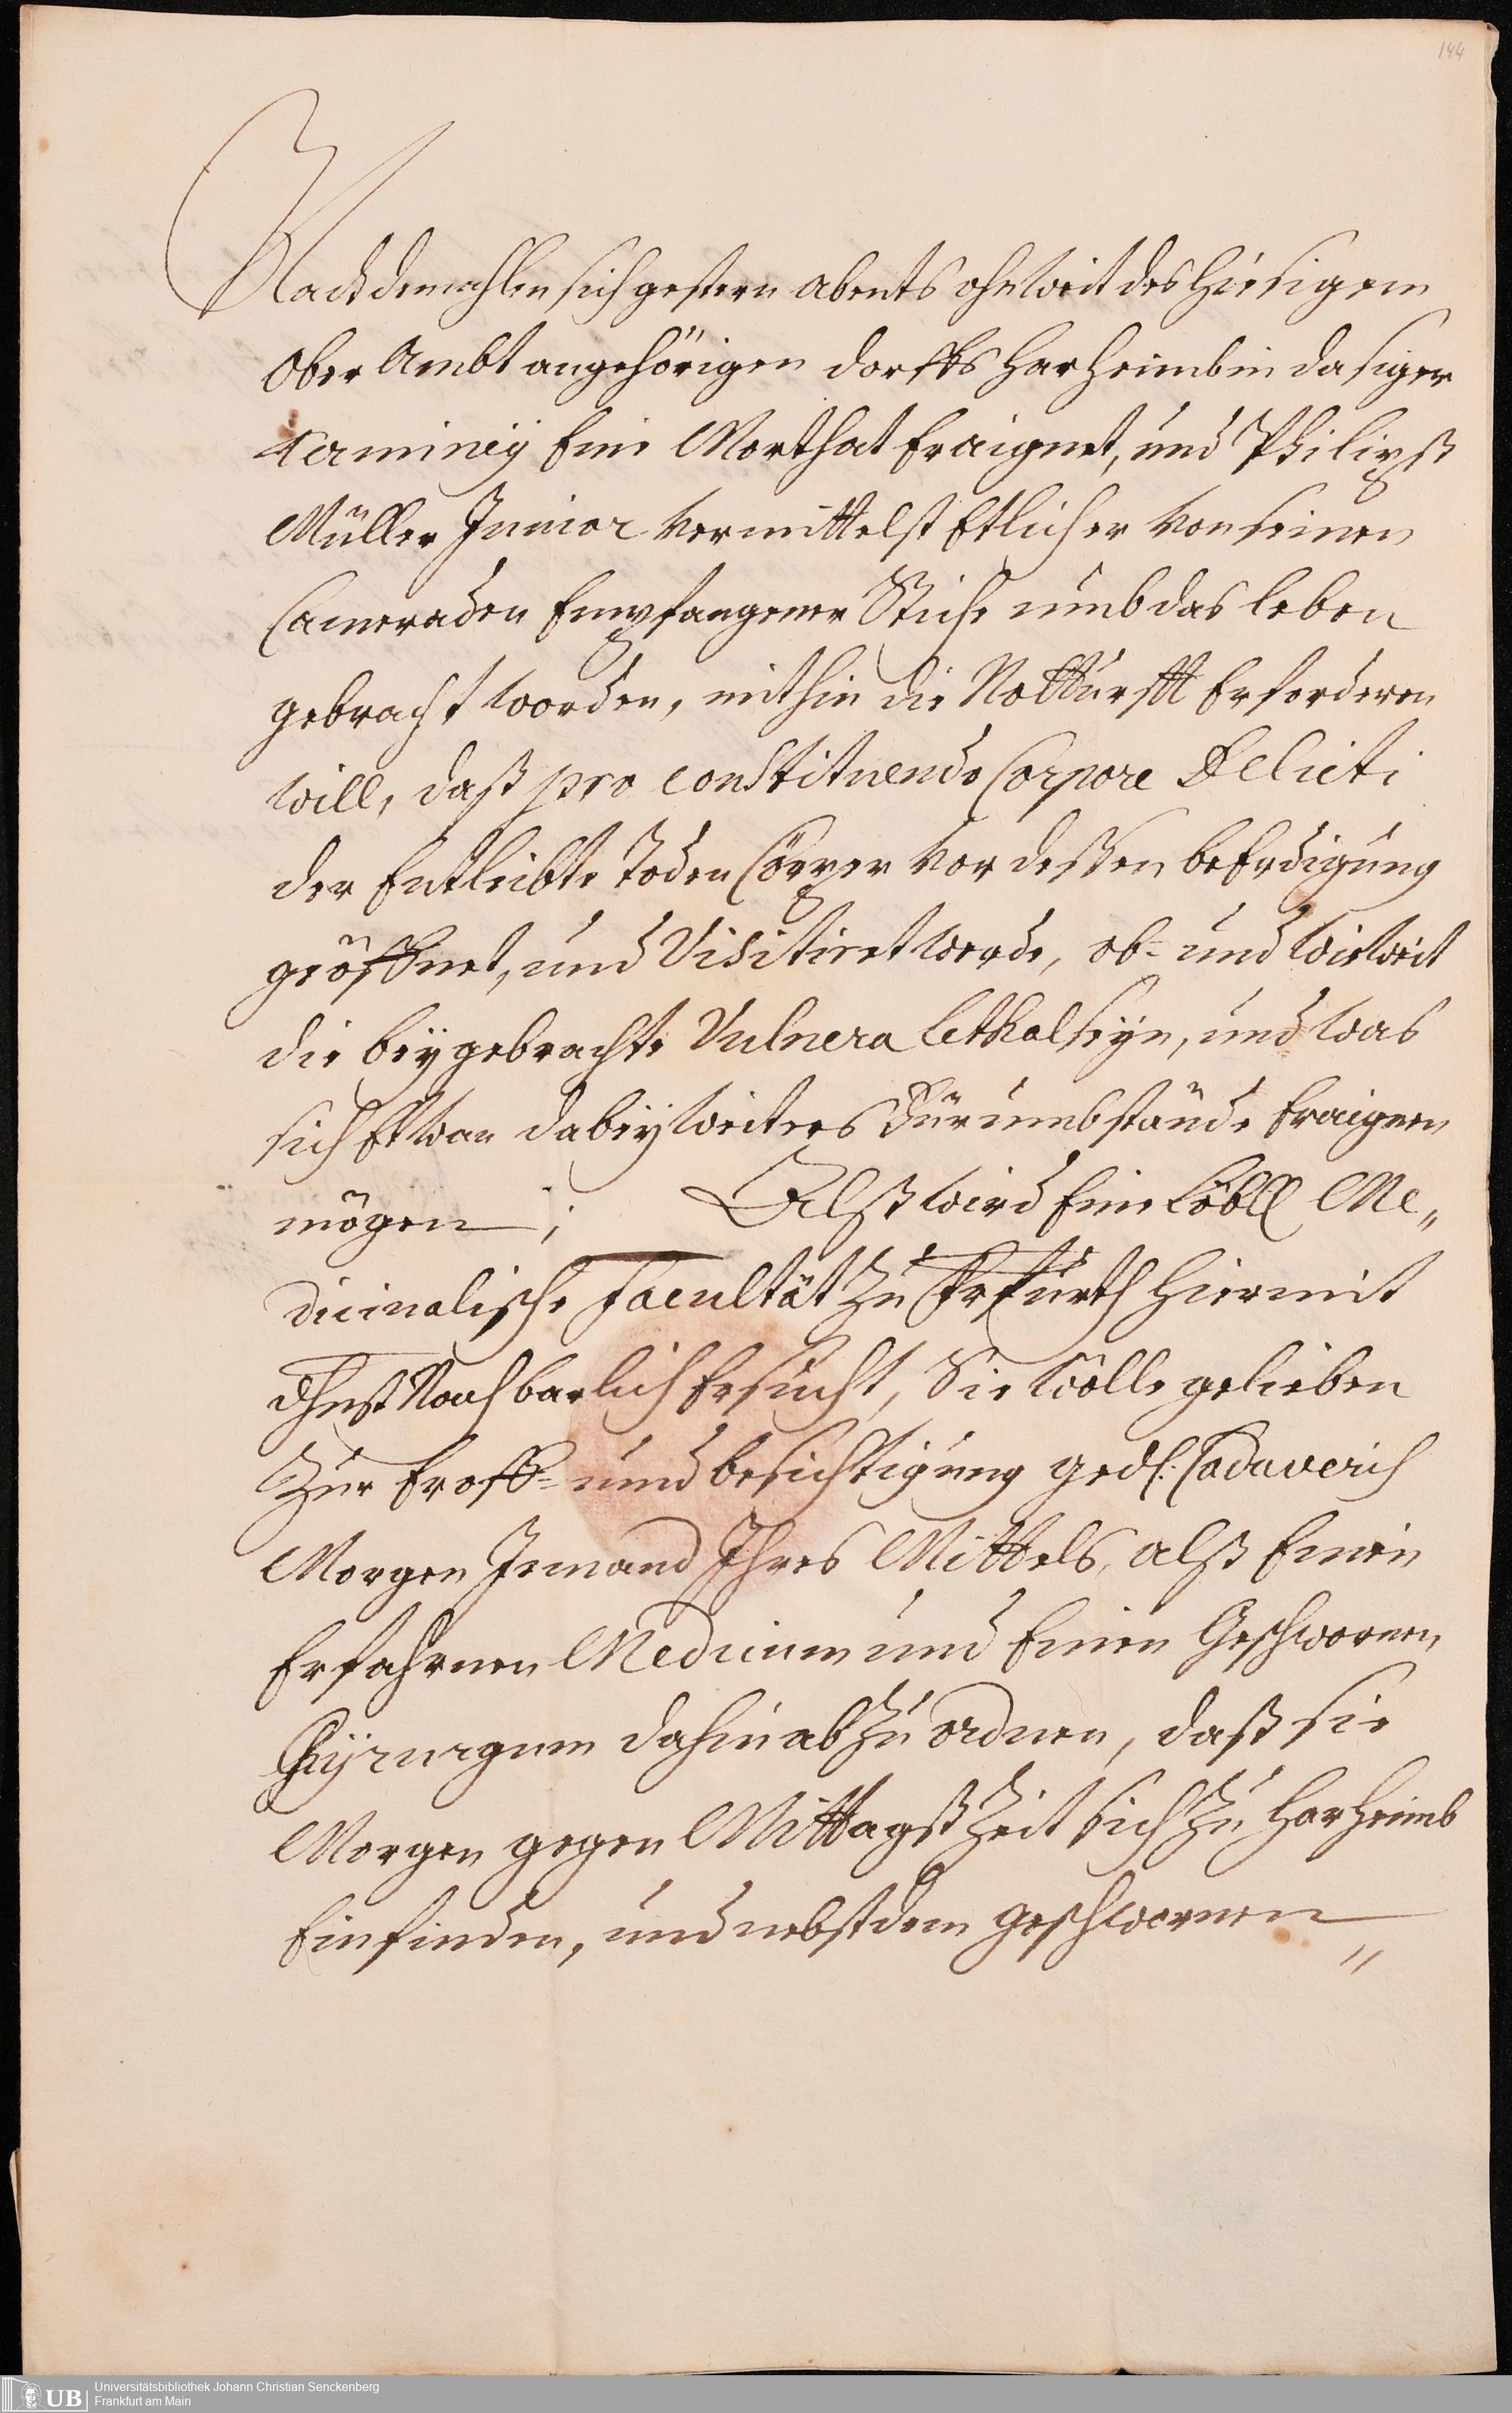 144
Nachdemahlen sich gestern abents ohnweit des hiesigem
Ober Ambt angehörigen dorffs Harheimb in dasiger
terminey Eine Morthat Eraignet, und Philipß
Müller Junior vermittelst Etlicher von seinen
Cameraden Empfangener Stiche umb das leben
gebracht worden, mithin die Notturfft Erforderen
will, daß pro constituendo Corpore Delicti
der Entleibte Toden Cörper vor deßen beErdigung
geöffnet, und Visitiret werde, ob- und wieweit
die beygebrachte Vulnera lethal seyn, und was
sich Etwan dabey weiters für umbstände Eraignen
mögen ; Alß wird Eine Löbll Me„
dicinalische Facultät zu Frfurth hiermit
dhnst Nachbarlich Ersucht, Sie wolle gelieben
zur Eroff- und besichtigung gedl. Cadaverisch
Morgen Jemand Ihres Mittels, alß Einen
Erfahrnen Medicum und Einen Geschwornen
Chyrurgum dahin abzuordnen, daß sie
Morgen gegen Mittagß Zeit sich zu Harheimb
Einfinden, und nebst dem geschwornen
"
UB Universitätsbibliothek Johann Christian Senckenberg
Frankfurt am Main